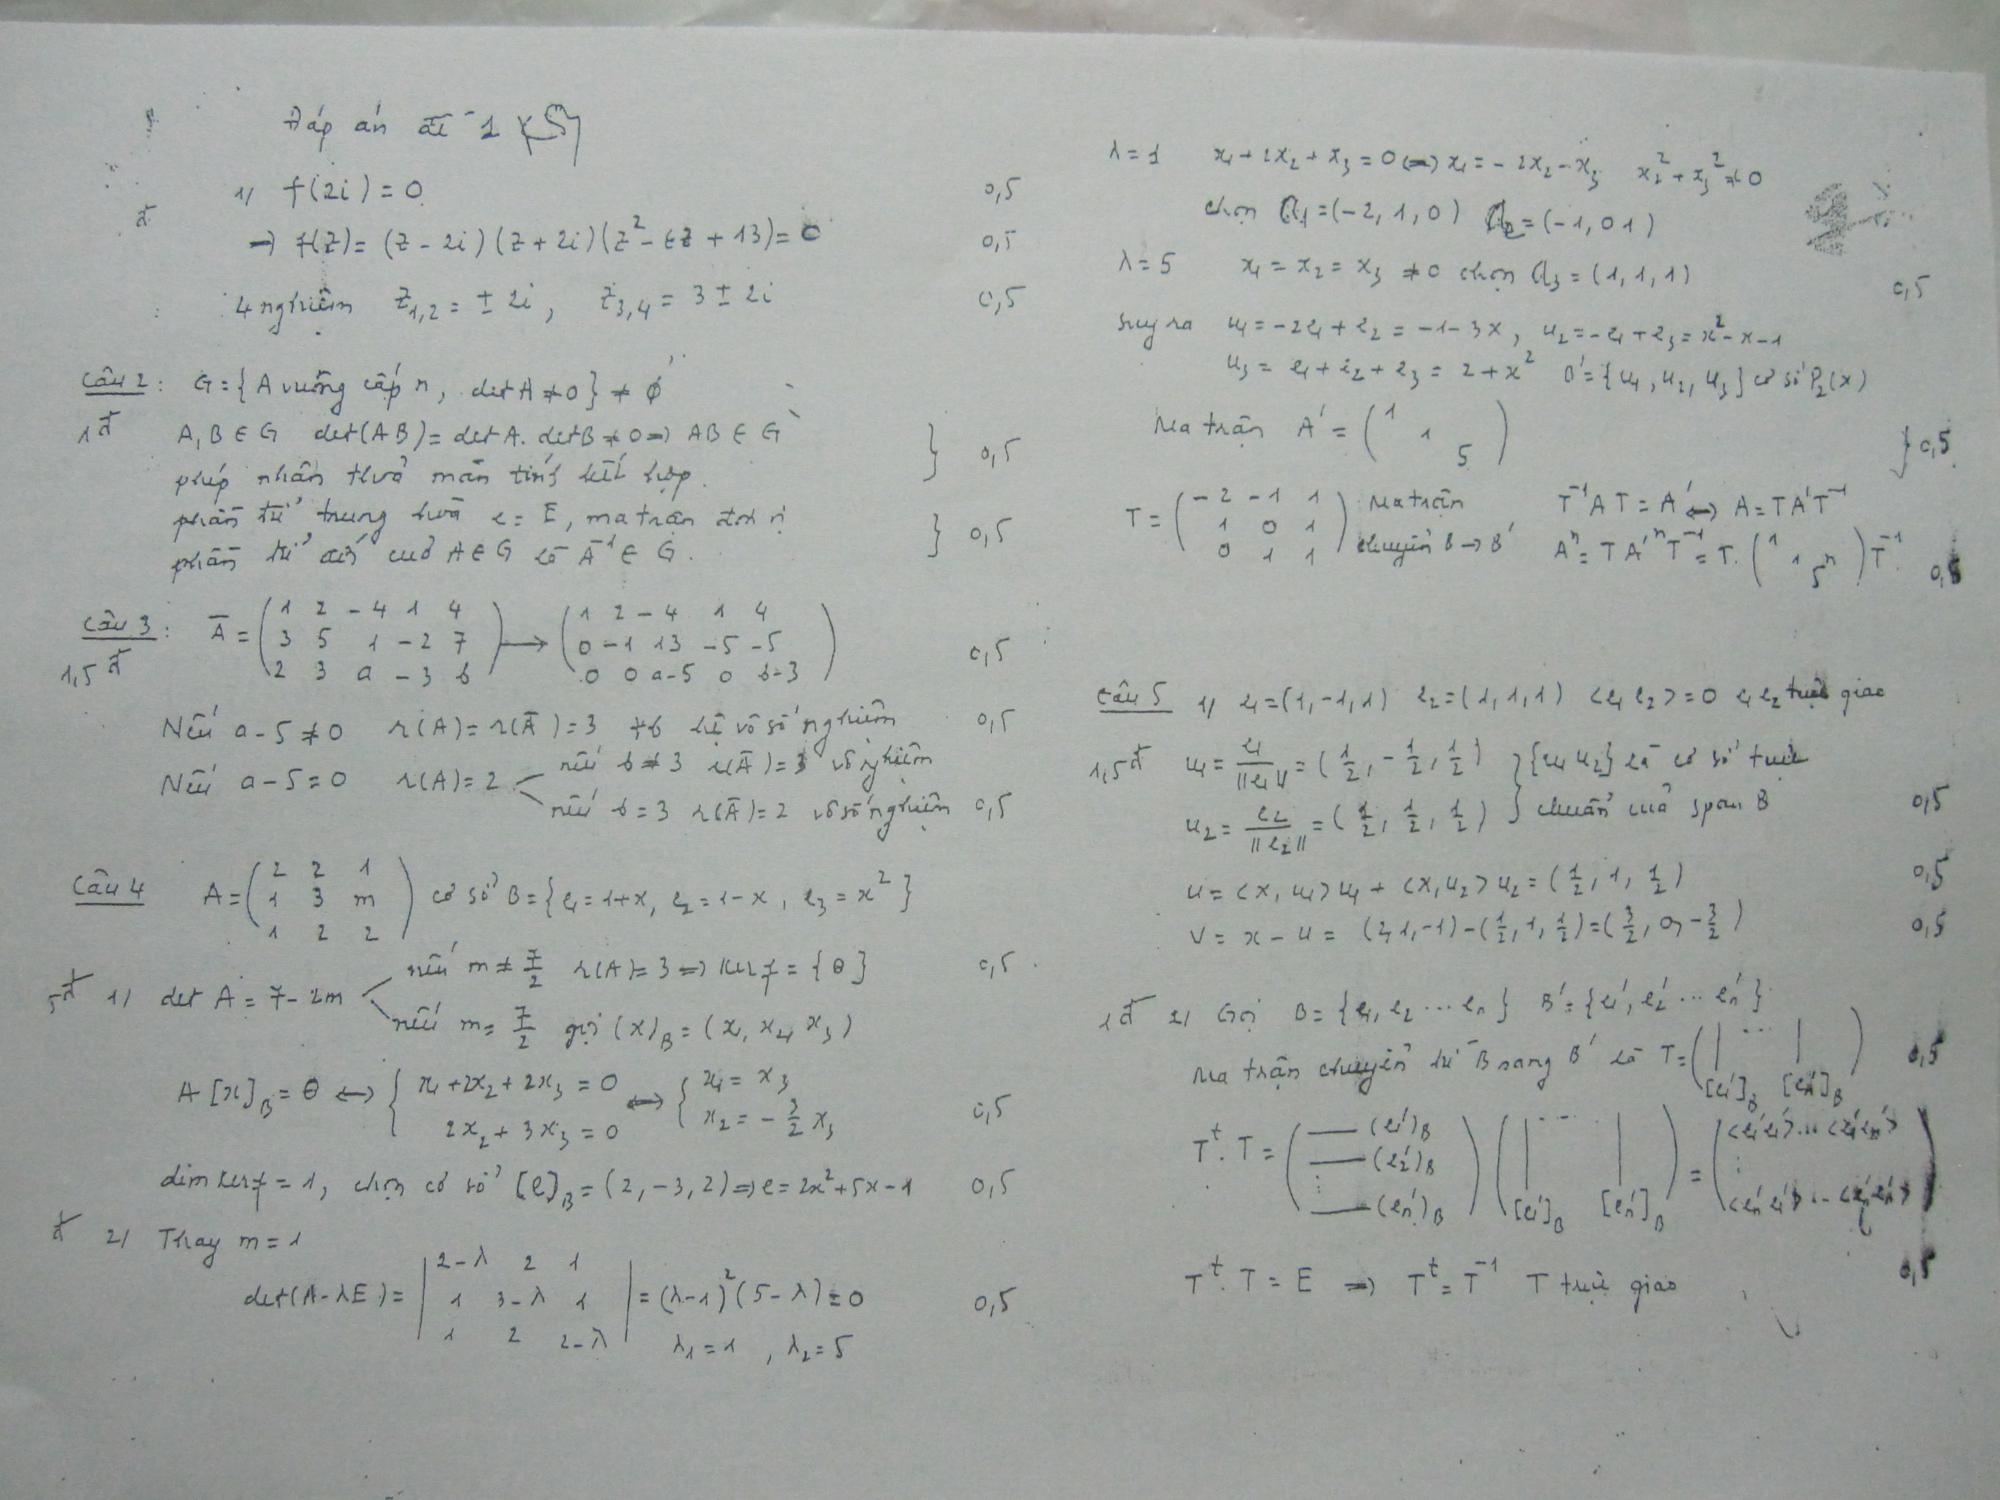 Đáp án đề 1
1/ f(2i) = 0 0,5
đ
→ f(z) = (z - 2i)(z + 2i)(z² - 6z + 13) = 0 0,5
4 nghiệm z₁,₂ = ± 2i, z₃,₄ = 3 ± 2i 0,5
Câu 2: G = {A vuông cấp n, det A ≠ 0} ≠ ∅
1đ A, B ∈ G det(AB) = det A. det B ≠ 0 → AB ∈ G } 0,5
phép nhân thoả mãn tính kết hợp.
phần tử trung hoà e = E, ma trận đơn vị } 0,5
phần tử đối của A ∈ G là A⁻¹ ∈ G.
Câu 3: Ā = ( 1 2 -4 1 4 ) → ( 1 2 -4 1 4 )
( 3 5 1 -2 7 ) ( 0 -1 13 -5 -5 ) 0,5
1,5đ ( 2 3 a -3 b ) ( 0 0 a-5 0 b-3 )
Nếu a - 5 ≠ 0 r(A) = r(Ā) = 3 ∀b hệ vô số nghiệm 0,5
Nếu a - 5 = 0 r(A) = 2 nếu b ≠ 3 r(Ā) = 3 vô nghiệm
nếu b = 3 r(Ā) = 2 vô số nghiệm 0,5
Câu 4 A = ( 2 2 1 ) cơ sở B = {e₁ = 1+x, e₂ = 1-x, e₃ = x²}
( 1 3 m )
( 1 2 2 )
5đ 1/ det A = 7 - 2m nếu m ≠ 7/2 r(A) = 3 → Ker f = {θ} 0,5
nếu m = 7/2 gọi (x)_B = (x₁, x₂, x₃)
A[x]_B = θ ↔ { x₁ + 2x₂ + 2x₃ = 0 ↔ { x₁ = x₃
2x₂ + 3x₃ = 0 x₂ = -3/2 x₃ 0,5
dim Ker f = 1, chọn cơ sở [e]_B = (2, -3, 2) ⇒ e = 2x² + 5x - 1 0,5
đ 2/ Thay m = 1
det(A - λE) = | 2-λ 2 1 |
| 1 3-λ 1 | = (λ-1)²(5-λ) = 0 0,5
| 1 2 2-λ | λ₁ = 1, λ₂ = 5
λ = 1 x₁ + 2x₂ + x₃ = 0 ↔ x₁ = -2x₂ - x₃ x₂² + x₃² ≠ 0
chọn a₁ = (-2, 1, 0) a₂ = (-1, 0 1)
λ = 5 x₁ = x₂ = x₃ ≠ 0 chọn a₃ = (1, 1, 1) 0,5
suy ra u₁ = -2e₁ + e₂ = -1 - 3x, u₂ = -e₁ + e₃ = x² - x - 1
u₃ = e₁ + e₂ + e₃ = 2 + x² B' = {u₁, u₂, u₃} cơ sở P₂(x)
Ma trận A' = ( 1 1 5 ) } 0,5
T = ( -2 -1 1 ) Ma trận T⁻¹AT = A' ↔ A = TA'T⁻¹
( 1 0 1 ) chuyển B → B' Aⁿ = TA'ⁿT⁻¹ = T. ( 1 1 5ⁿ ) T⁻¹ 0,5
( 0 1 1 )
Câu 5 1/ e₁ = (1, -1, 1) e₂ = (1, 1, 1) <e₁ e₂> = 0 e₁ e₂ trực giao
1,5đ u₁ = e₁/||e₁|| = (1/2, -1/2, 1/2) } {u₁ u₂} là cơ sở trực
u₂ = e₂/||e₂|| = (1/2, 1/2, 1/2) } chuẩn của span B 0,5
u = <x, u₁> u₁ + <x, u₂> u₂ = (1/2, 1, 1/2) 0,5
v = x - u = (2, 1, -1) - (1/2, 1, 1/2) = (3/2, 0, -3/2) 0,5
1đ 2/ Gọi B = {e₁, e₂ ... eₙ} B' = {e₁', e₂' ... eₙ'}
Ma trận chuyển từ B sang B' là T = ( [e₁']_B ... [eₙ']_B ) 0,5
Tᵗ. T = ( (e₁')_B (e₂')_B ⋮ (eₙ')_B ) ( [e₁']_B ... [eₙ']_B ) = ( <e₁'e₁'> ... <e₁'eₙ'> ⋮ <eₙ'e₁'> ... <eₙ'eₙ'> )
Tᵗ. T = E ⇒ Tᵗ = T⁻¹ T trực giao 0,5